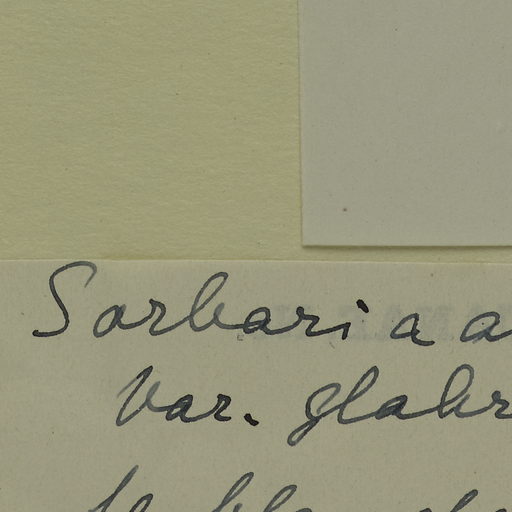 Sorbaria a
var. glabr